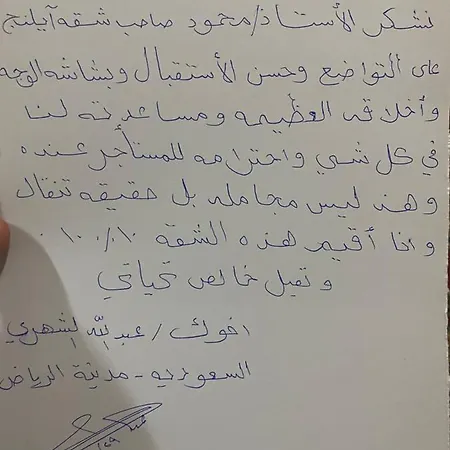 نشكر الأستاذ/محمود صاحب شقه آيلنج
على التواضع وحسن الأستقبال وبشاشه الوجه
وأخلاقه العظيمه ومساعدته لنا
في كل شي واحترامه للمستأجر عنده
وهذ ليس مجامله بل حقيقه تنقال
وانا أقيم هذه الشقة ١٠٠٪١٠
وتقبل خالص تحياتي
اخوك / عبدالله الشهري
السعوديه - مدينة الرياض